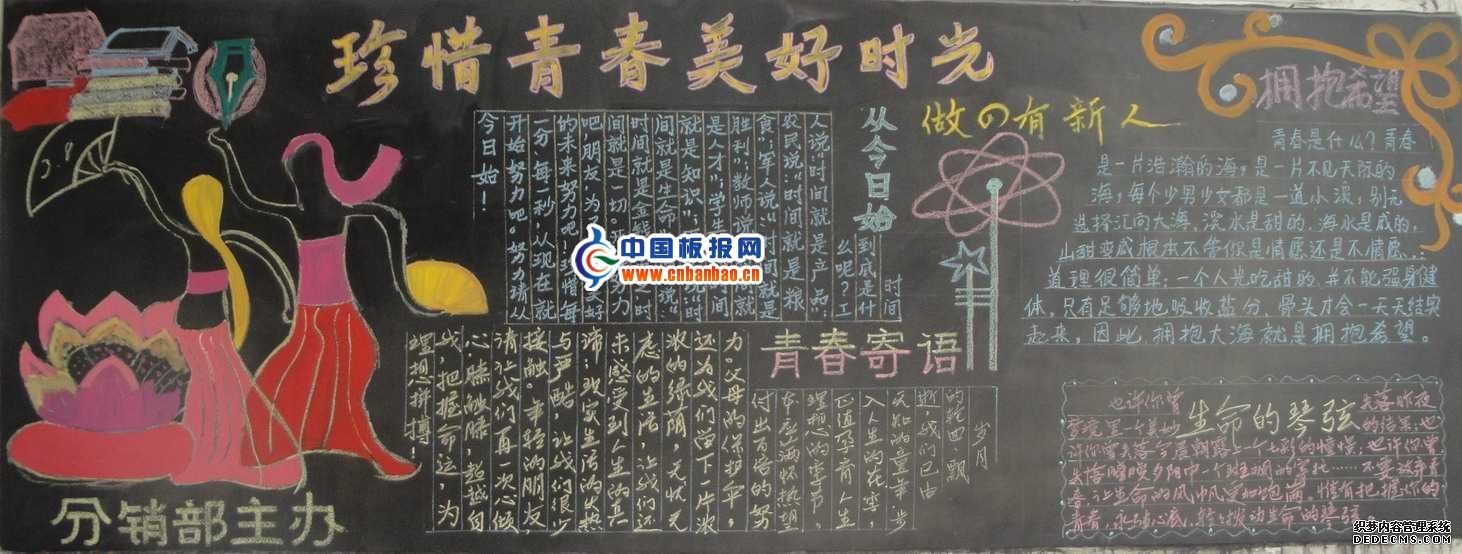 珍惜青春美好时光
做の有新人
从今日始
时间
到底是什
么呢？工
人说“时间就是产品”
农民说“时间就是粮
食”；军人说“时间就是
胜利”教师说
就是知识”；
时间就是金
间就是一切。
吧，朋友，为了
的未来努力吧！珍惜每
一分每一秒，从现在就
开始努力吧。努力请从
今日始！
中国板报网
www.cnbanbao.cn
青春寄语
岁月
的轮回飘
逝，我们已由
天知的童年步
入人生的花季，
正值孕育人生
理想的季节，
付出百倍的努
力。父母的保护伞，
还为我们留下一片浓
浓的绿荫，无忧无
虑的生活，让我们还
未感受到人生的真
谛，现实生活的炎热
与严酷，让我们很少
接触。年轻的朋友，
请让我们再一次心倾
心，膝触膝，超越自
我，把握命运，为
理想拼搏！
拥抱希望
青春是什么？青春
是一片浩瀚的海，是一片不见天际的
海，每个少男少女都是一道小溪，别无
选择汇向大海。淡水是甜的，海水是咸的，
由甜变咸根本不管你是情愿还是不情愿。
道理很简单：一个人光吃甜的，并不能强身健
体，只有足够地吸收盐分，骨头才会一天天结实
起来，因此，拥抱大海就是拥抱希望。
生命的琴弦
也许你曾失落昨夜
梦境里一个美妙的结果，也
许你曾失落今晨朝露上一个七彩的憧憬，也许你曾
青青，永结心底，轻轻拨动生命的琴弦。
分销部主办
织梦内容管理系统
DEDECMS.COM